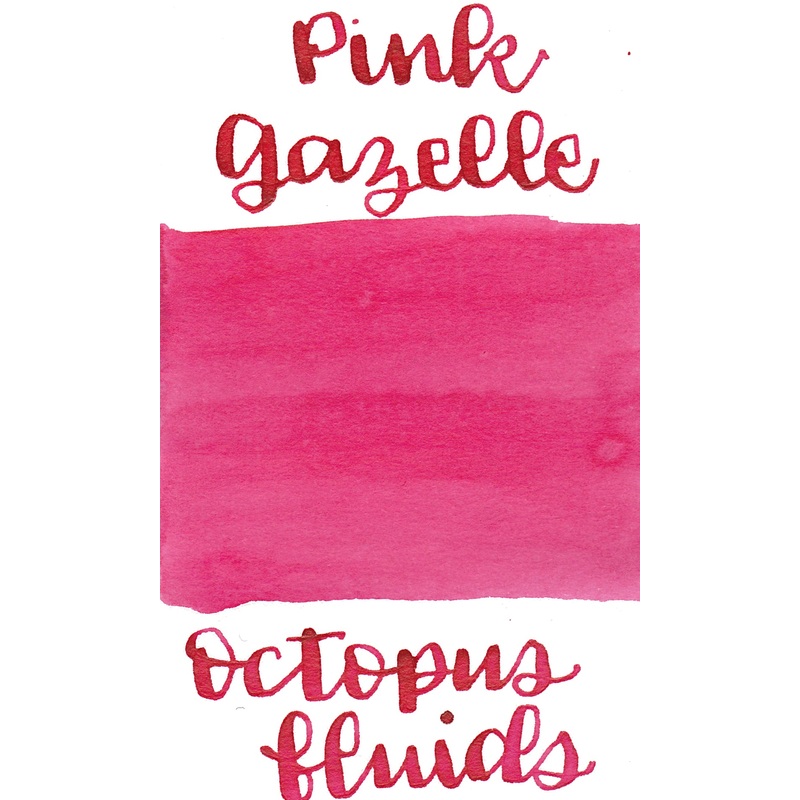 Pink
Gazelle
Octopus
fluids